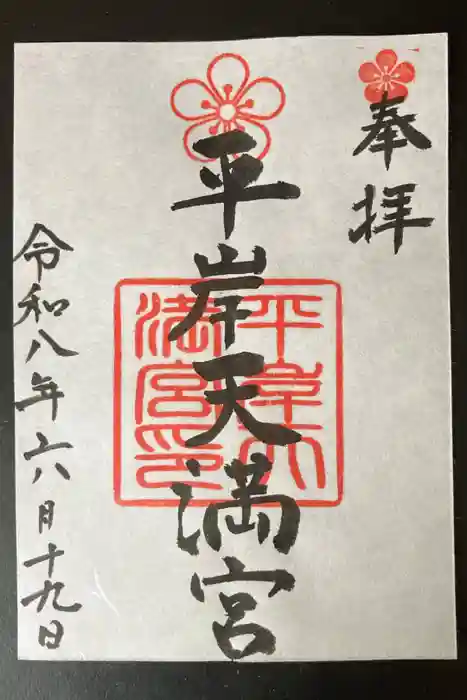 奉拝
平岸天満宮
平岸天
満宮印
令和八年六月十九日